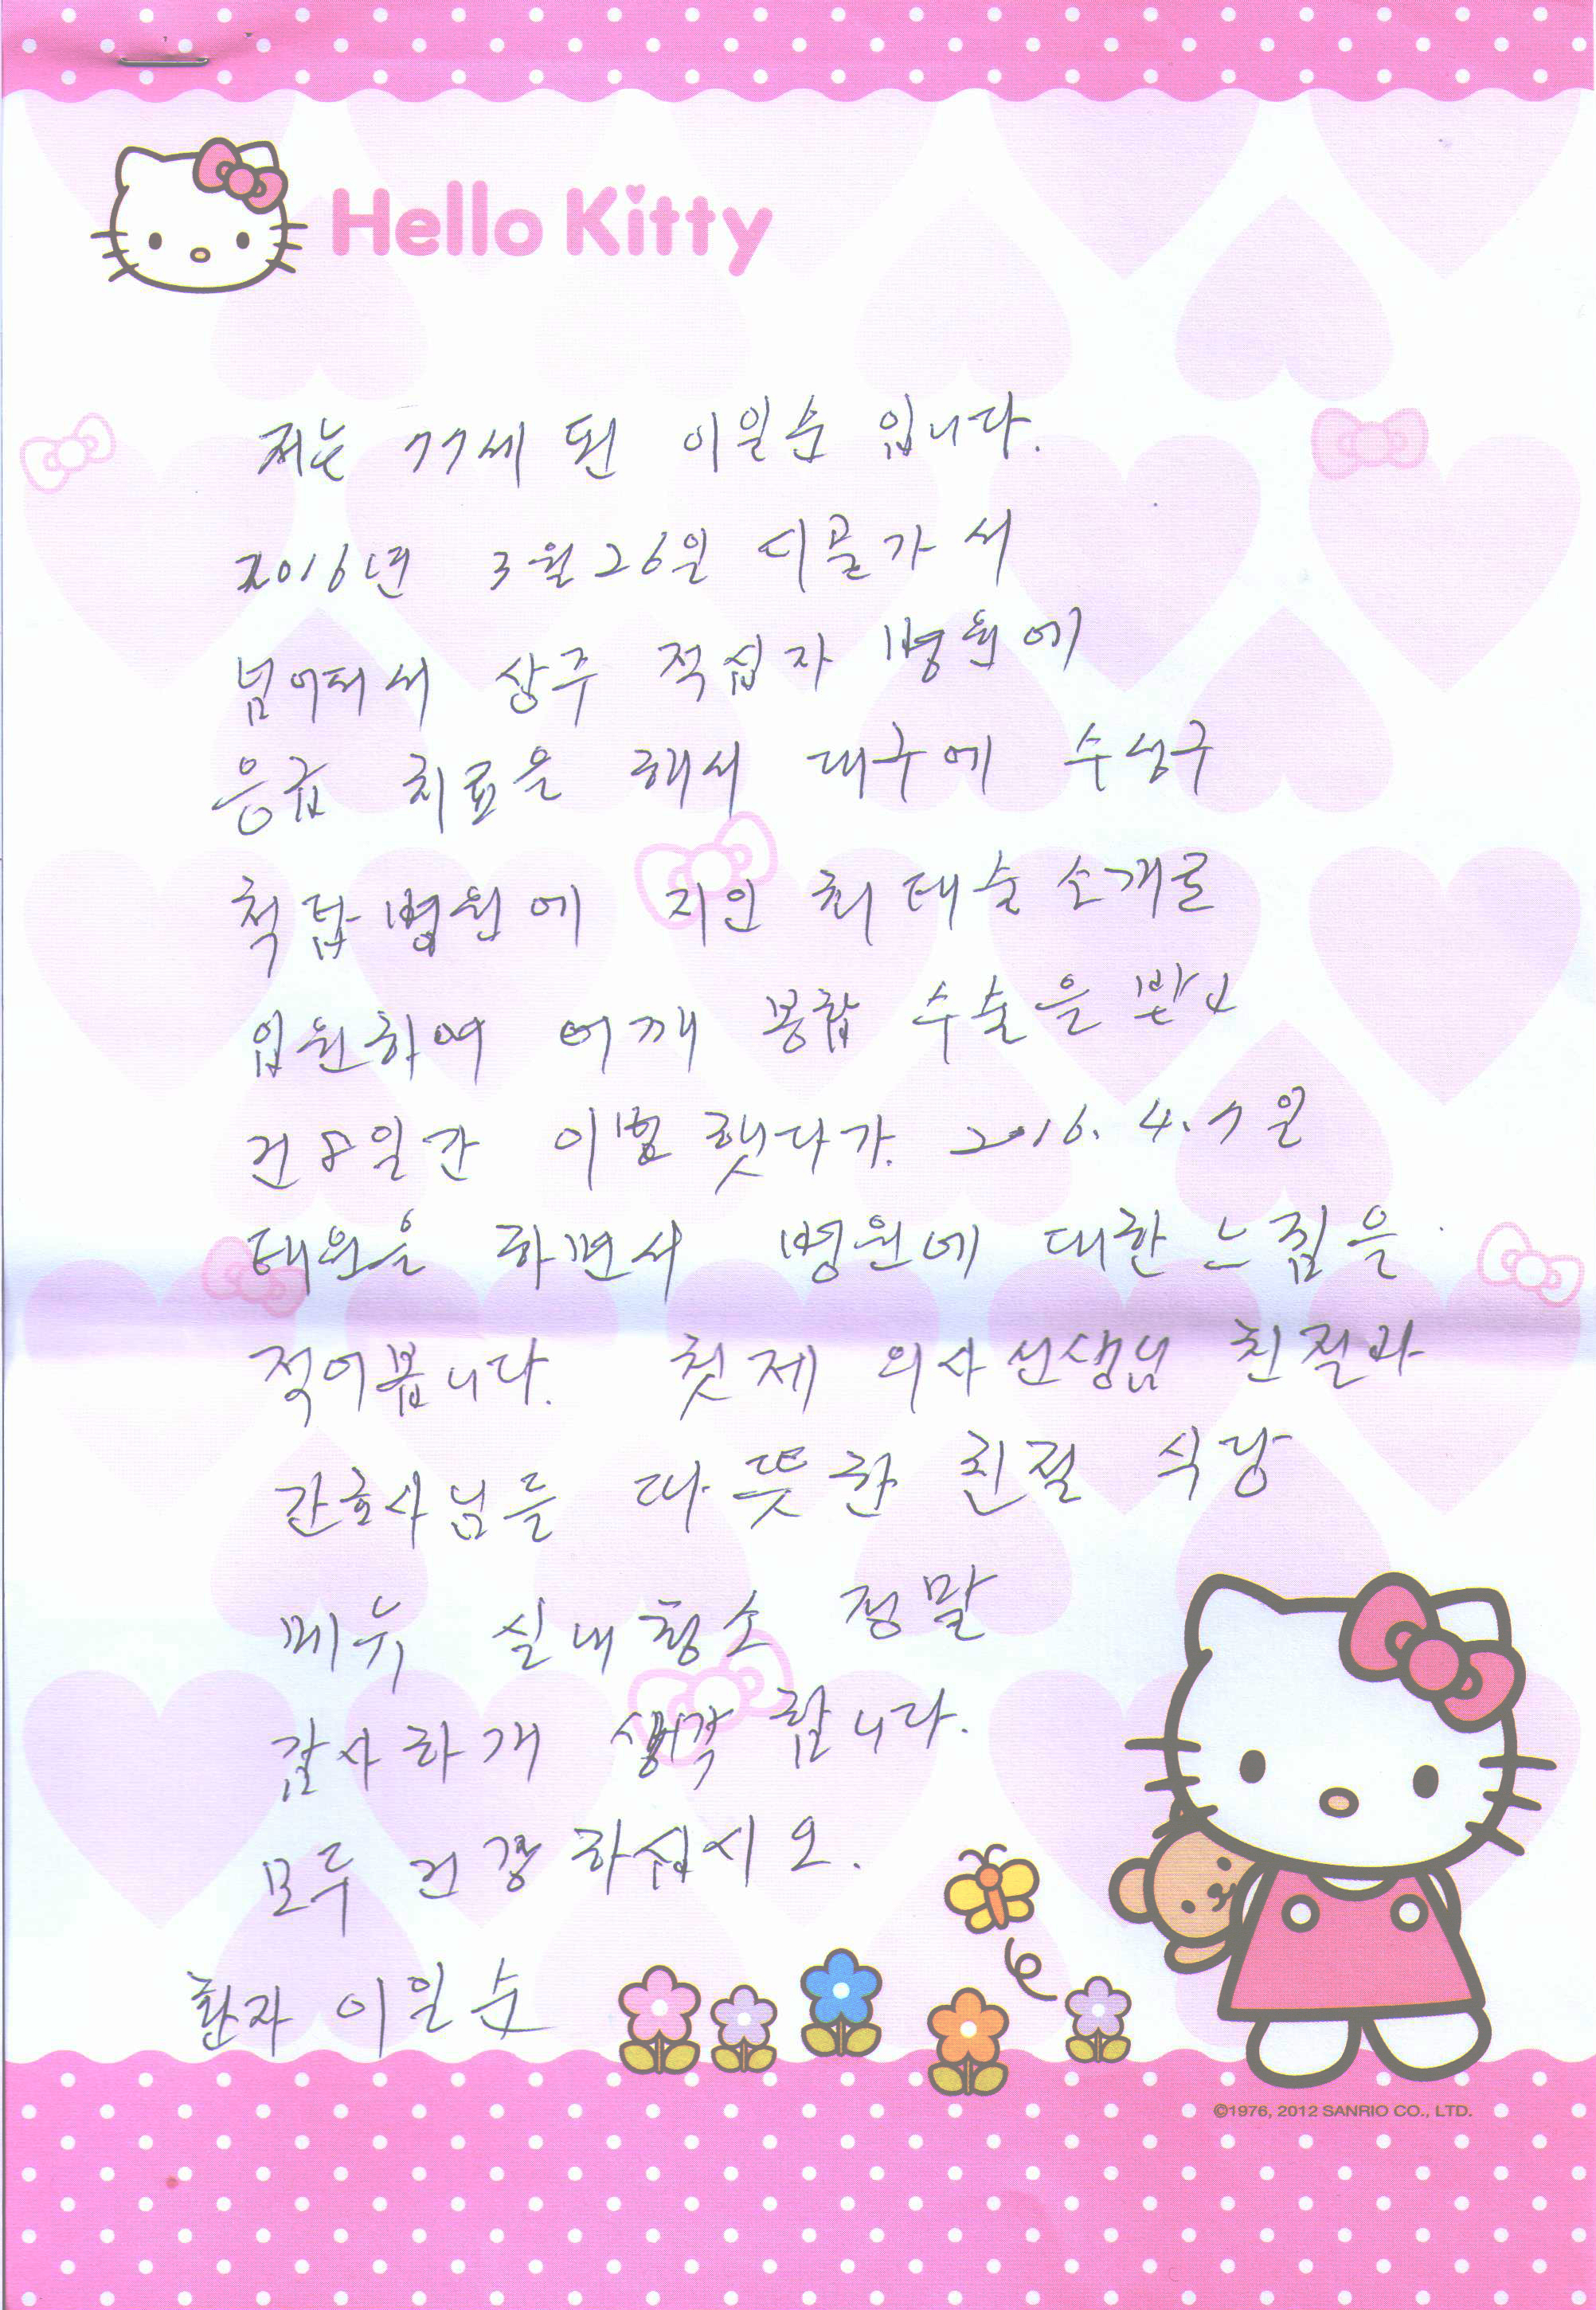 Hello Kitty
저는 77세 된 이일순 입니다.
2016년 3월 26일 디골가서
넘어저서 상주 적십자 병원에
응급 치료을 해서 대구에 수성구
척탑병원에 지인 최태술 소개로
입원하여 어깨 봉합 수술을 받고
건8일간 이병했다가. 2016. 4. 7일
태원을 하면서 병원에 대한 느낌을
적어봅니다. 첫제 의사선생님 친절과
간호사님를 따뜻한 친절 식당
메뉴 실내청소 정말
감사하개 생각 합니다.
모두 건강하십시오.
환자 이일순
©1976, 2012 SANRIO CO., LTD.